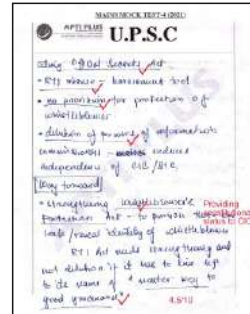 MAINS MOCK TEST-4 (2021)
APTI PLUS
U.P.S.C
citing Official Secrets Act
• RTI misuse – harassment tool
• no provision for protection of
whistleblower
• dilution of powers of information
commissioners – reduces
independence of CIC / SIC
Way forward
• strengthening whistleblower's
Protection Act – to punish those who
leak / reveal identity of whistleblower
Providing
constitutional
status to CIC
RTI Act needs strengthening and
not dilution if it has to live up
to its name of "master key to
good governance"
4.5/10